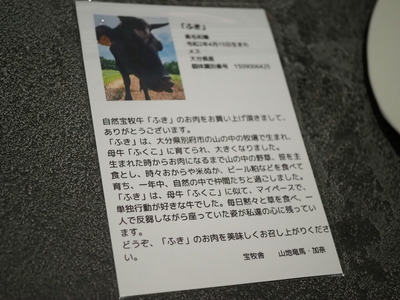 「ふき」
黒毛和種
令和2年4月15日生まれ
メス
大分県産
個体識別番号　1509306425
自然宝牧牛「ふき」のお肉をお買い上げ頂きまして、
ありがとうございます。
「ふき」は、大分県別府市の山の中の牧場で生まれ、
母牛「ふくこ」に育てられ、大きくなりました。
生まれた時からお肉になるまで山の中の野草、笹を主
食とし、時々おからや米ぬか、ビール粕などを食べて
育ち、一年中、自然の中で仲間たちと過ごしました。
「ふき」は、母牛「ふくこ」に似て、マイペースで、
単独行動が好きな牛でした。毎日黙々と草を食べ、一
人で反芻しながら座っていた姿が私達の心に残ってい
ます。
どうぞ、「ふき」のお肉を美味しくお召し上がりくださ
い。
宝牧舎　山地竜馬・加奈